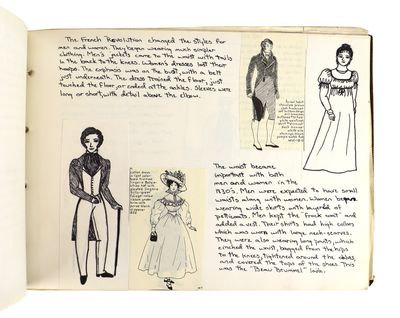 The French Revolution changed the styles for
men and women. They began wearing much simpler
clothing. Men's jackets came to the waist with tails
in the back to the knees. Women's dresses lost their
hoops. The emphasis was on the bust, with a belt
just underneath. The dress trained the floor, just
touched the floor, or ended at the ankles. Sleeves were
long or short, with detail above the elbow.
The waist became
important with both
men and women in the
1830's. Men were expected to have small
waists along with women. Women began
wearing wide skirts with layers of
petticoats. Men kept the frock coat and
added a vest. Their shirts had high collars
which was worn with large neck-scarves.
They were also wearing long pants, which
cinched the waist, bagged from the hips
to the knees, tightened around the calves,
and covered the tops of the shoes. This
was the "Beau Brummel" look.